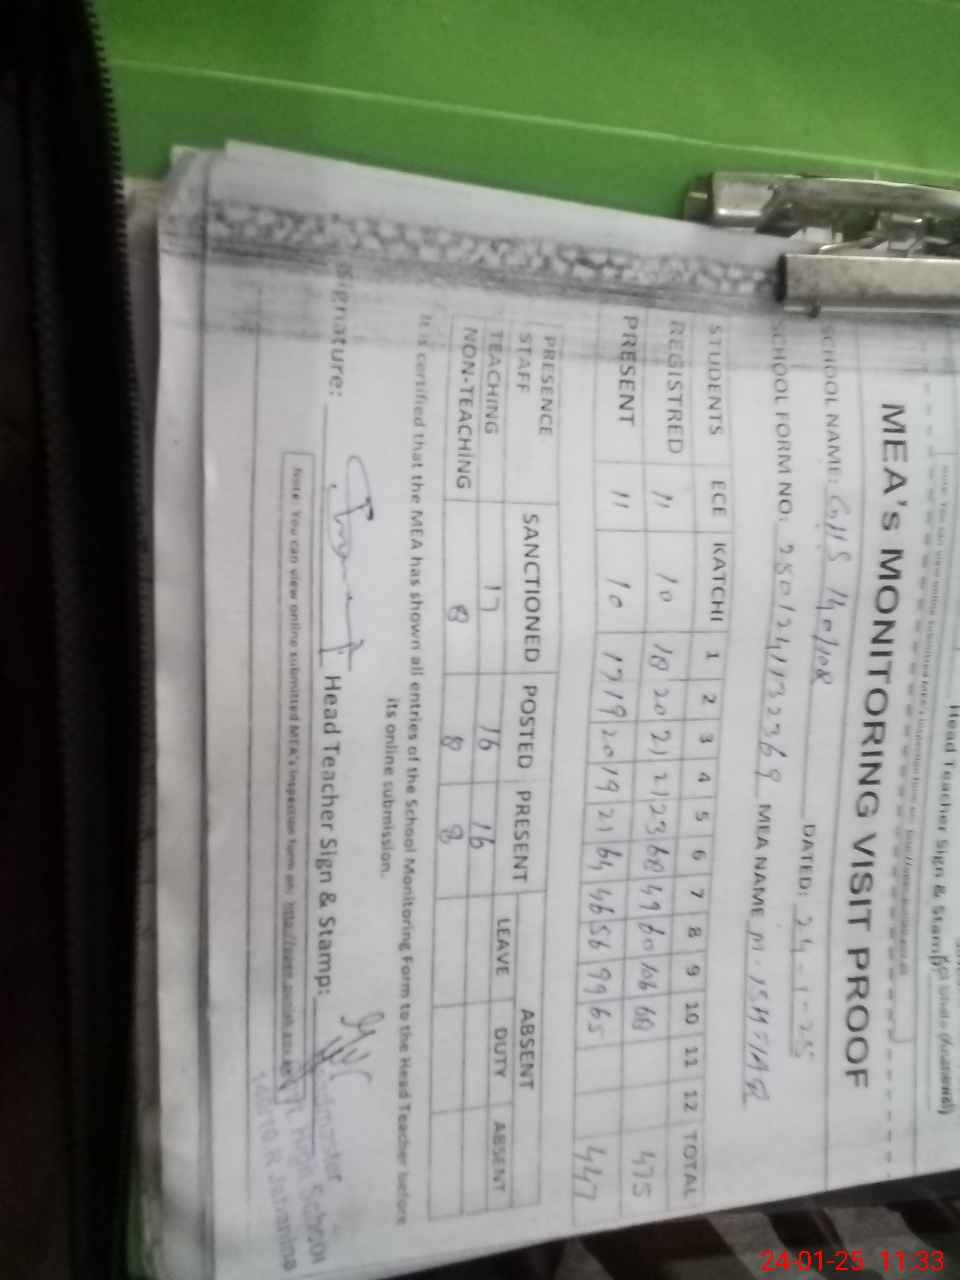 Head Teacher Sign & Stamp:
MEA's MONITORING VISIT PROOF
SCHOOL NAME: GHS 140/10R DATED: 24-1-25
SCHOOL FORM NO: 2501241132369 MEA NAME M. ISHTIAQ
STUDENTS ECE KATCHI 1 2 3 4 5 6 7 8 9 10 11 12 TOTAL
REGISTRED 11 10 18 20 21 21 23 68 49 60 106 68 475
PRESENT 11 10 17 19 20 19 21 64 46 56 99 65 447
PRESENCE STAFF SANCTIONED POSTED PRESENT ABSENT
LEAVE DUTY ABSENT
TEACHING 17 16 16
NON-TEACHING 8 8 8
It is certified that the MEA has shown all entries of the School Monitoring Form to the Head Teacher before
its online submission.
Signature: Head Teacher Sign & Stamp:
High School
Jahania
Note: You can view online submitted MEA's Inspection form on:
24-01-25 11:33